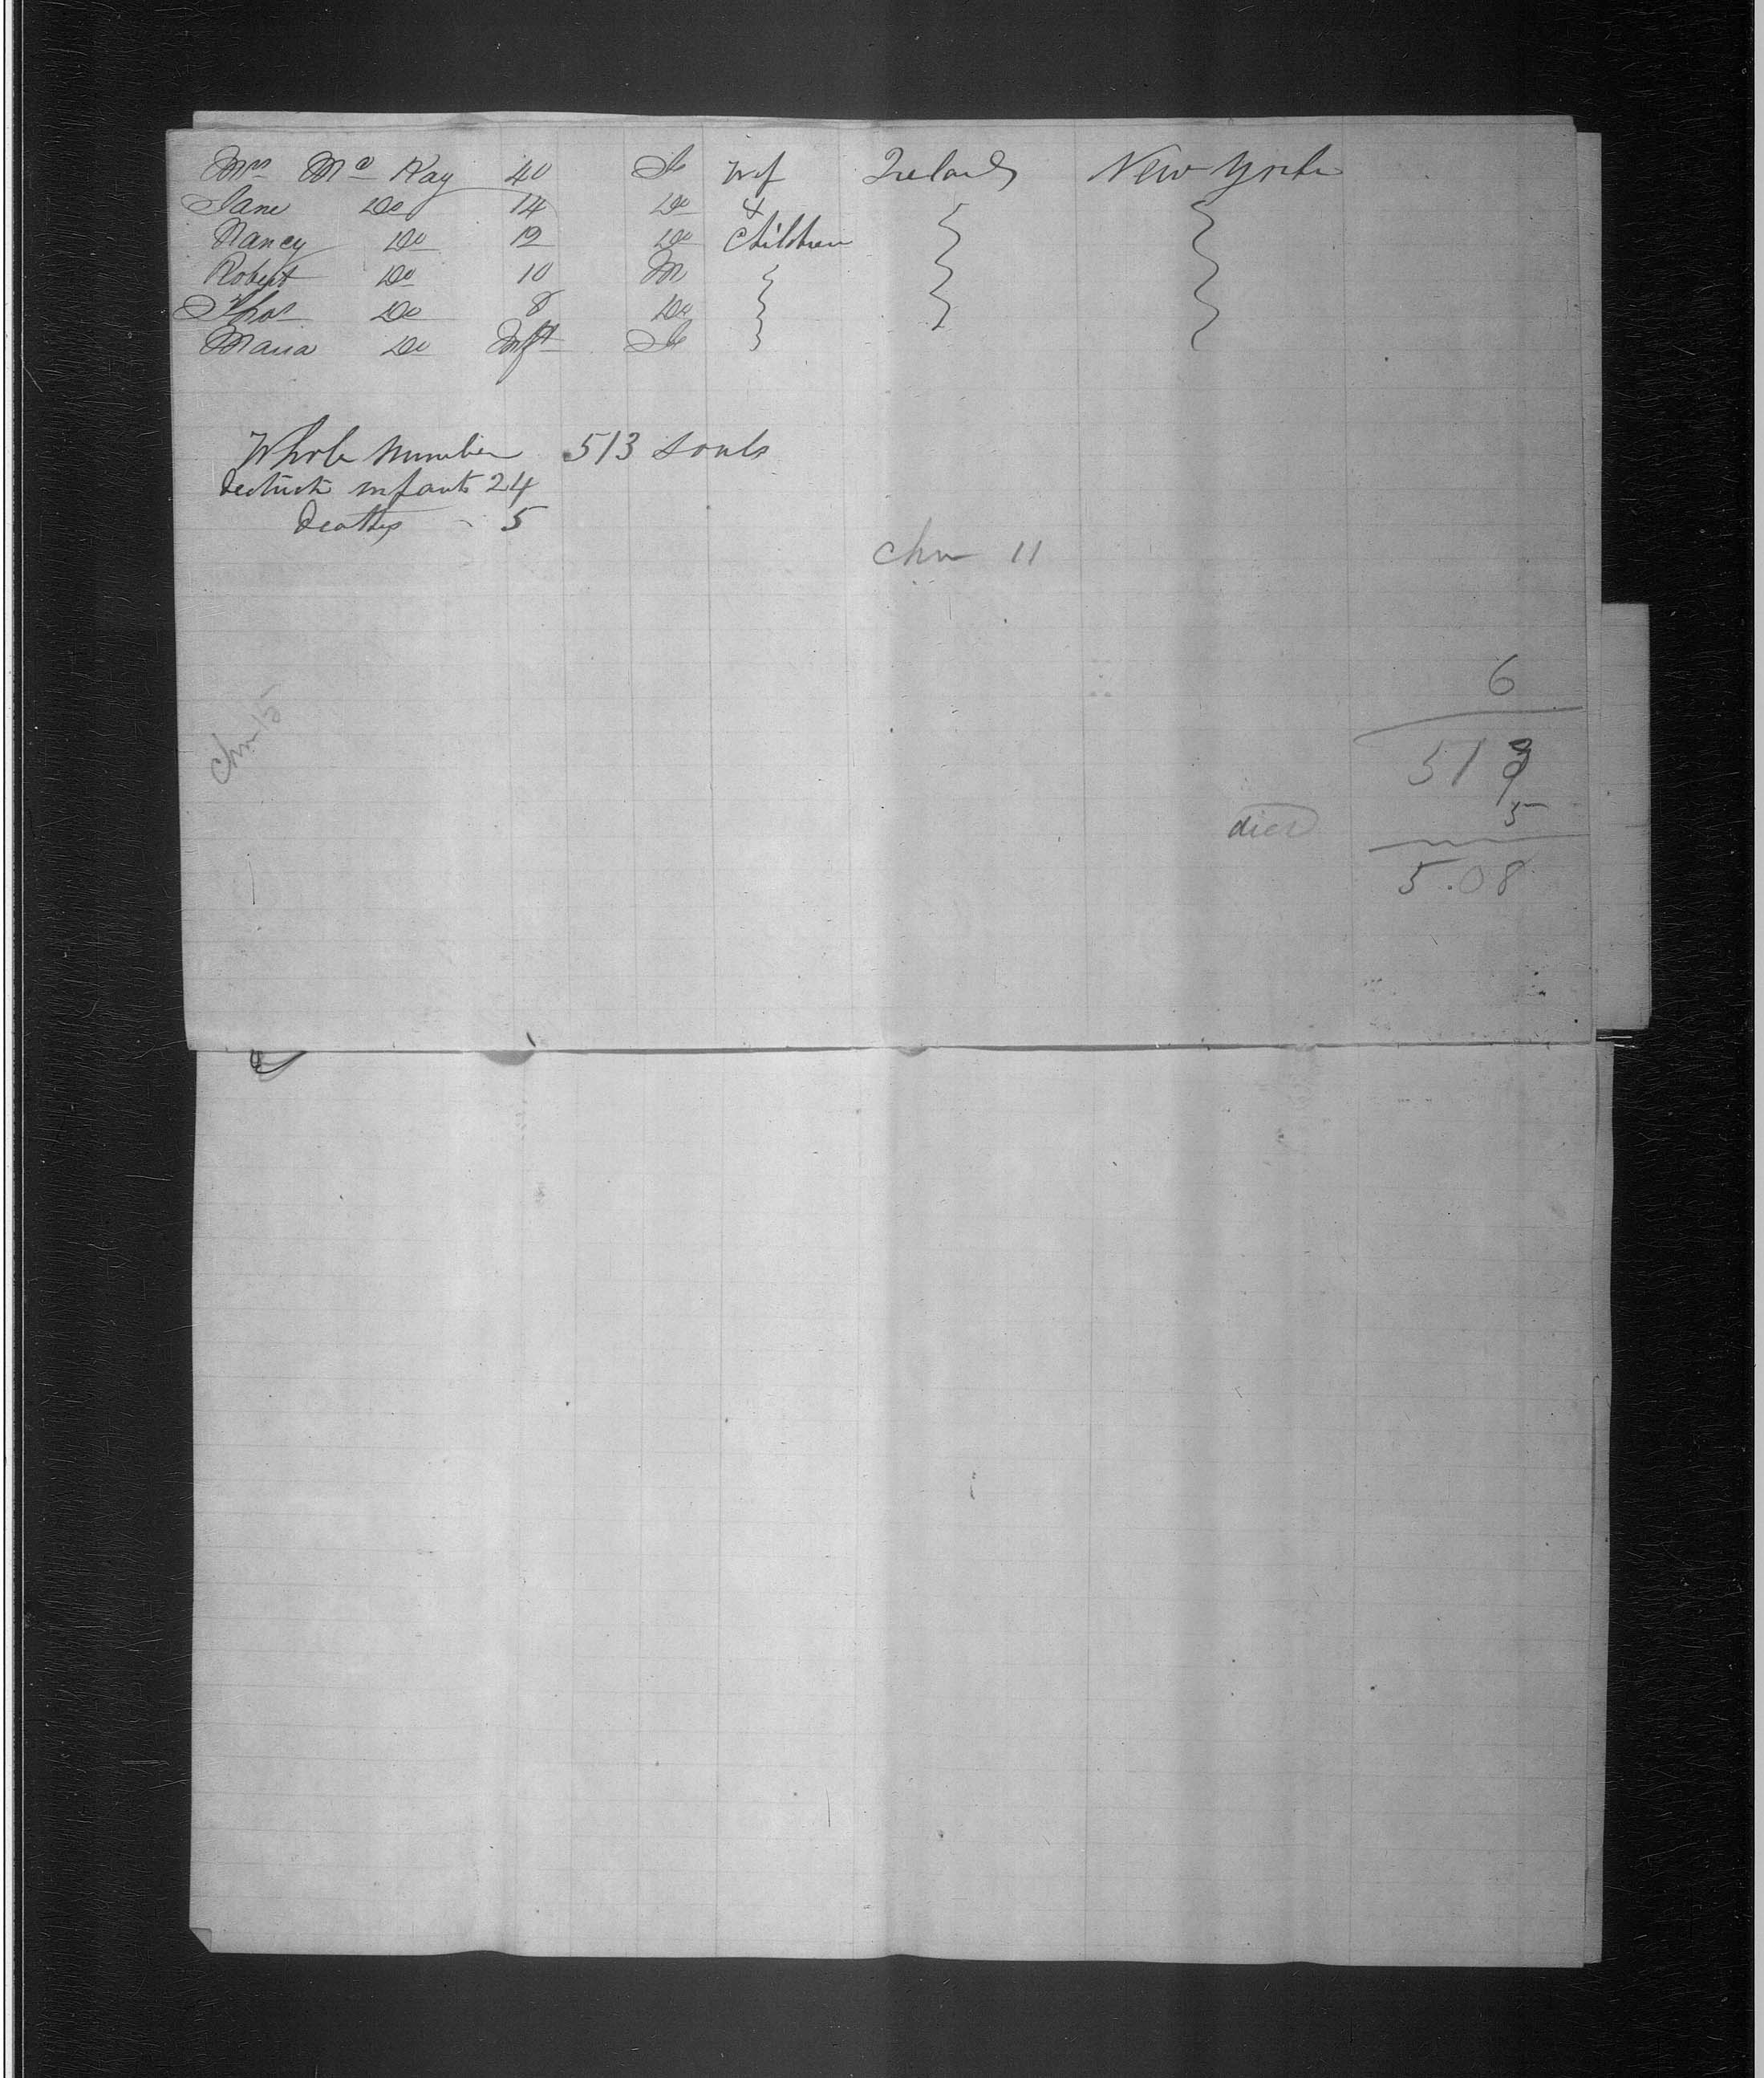 Mrs Mc Kay 40 F Wf Ireland New York
Jane Do 14 Do &
Nancy Do 12 Do Children
Robert Do 10 M
Thos Do 8 Do
Maria Do Inft F
Whole Number 513 Souls
deduct infants 24
deaths - 5
Chn 11
6
Chn 15
513
died 5
5.08